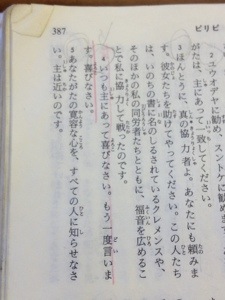 387
ピリピ
2 ユウオデヤに勧め、スントケに勧め
がたは、主にあって一致してください。
3 ほんとうに、真の協力者よ。あなたにも頼みま
す。彼女たちを助けてやってください。この人たち
は、いのちの書に名のしるされているクレメンスや、
そのほかの私の同労者たちとともに、福音を広めるこ
とで私に協力して戦ったのです。
4 いつも主にあって喜びなさい。もう一度言いま
す。喜びなさい。
5 あなたがたの寛容な心を、すべての人に知らせなさ
い。主は近いのです。